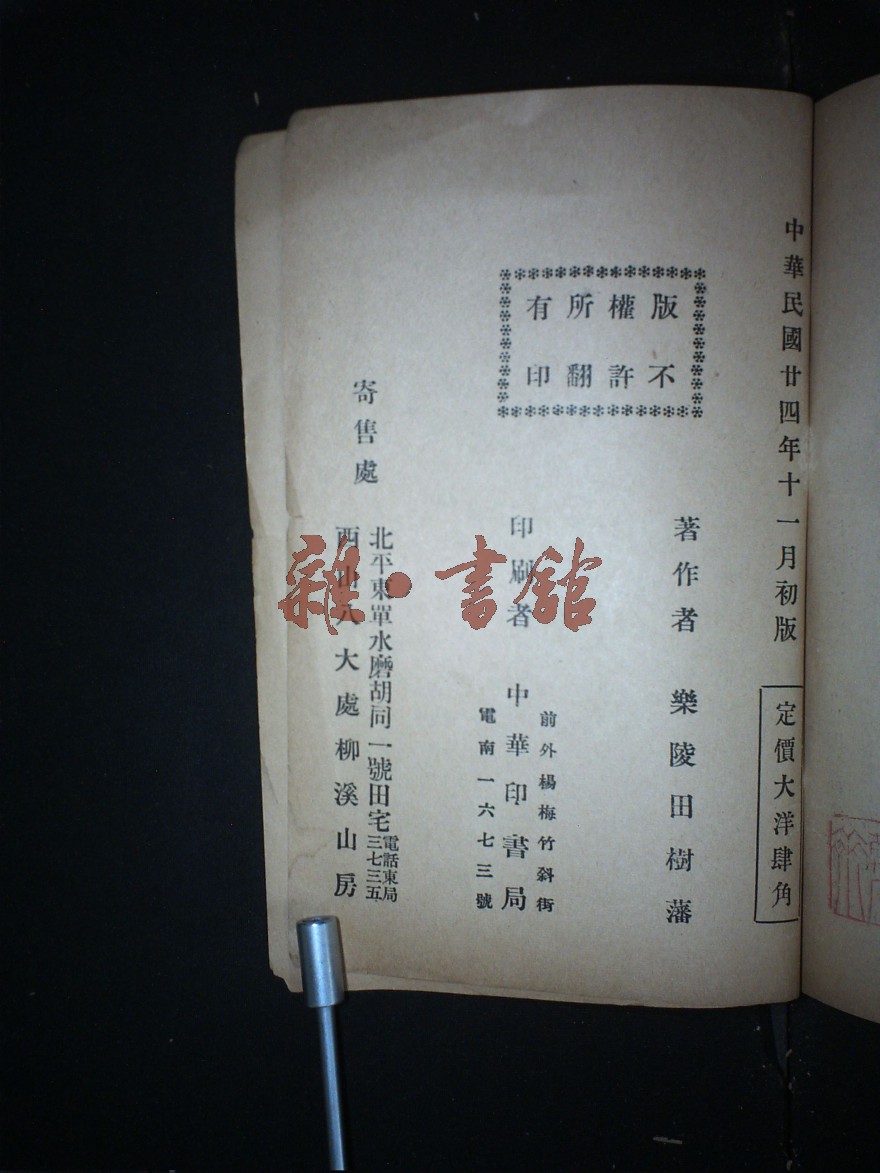 中華民國廿四年十一月初版
定價大洋肆角
版權所有
不許翻印
著作者 樂陵田樹藩
印刷者 中華印書局
前外楊梅竹斜街
電南一六七三號
寄售處
北平東單水磨胡同一號田宅電話東局三七三五
西山八大處柳溪山房
雜·書館